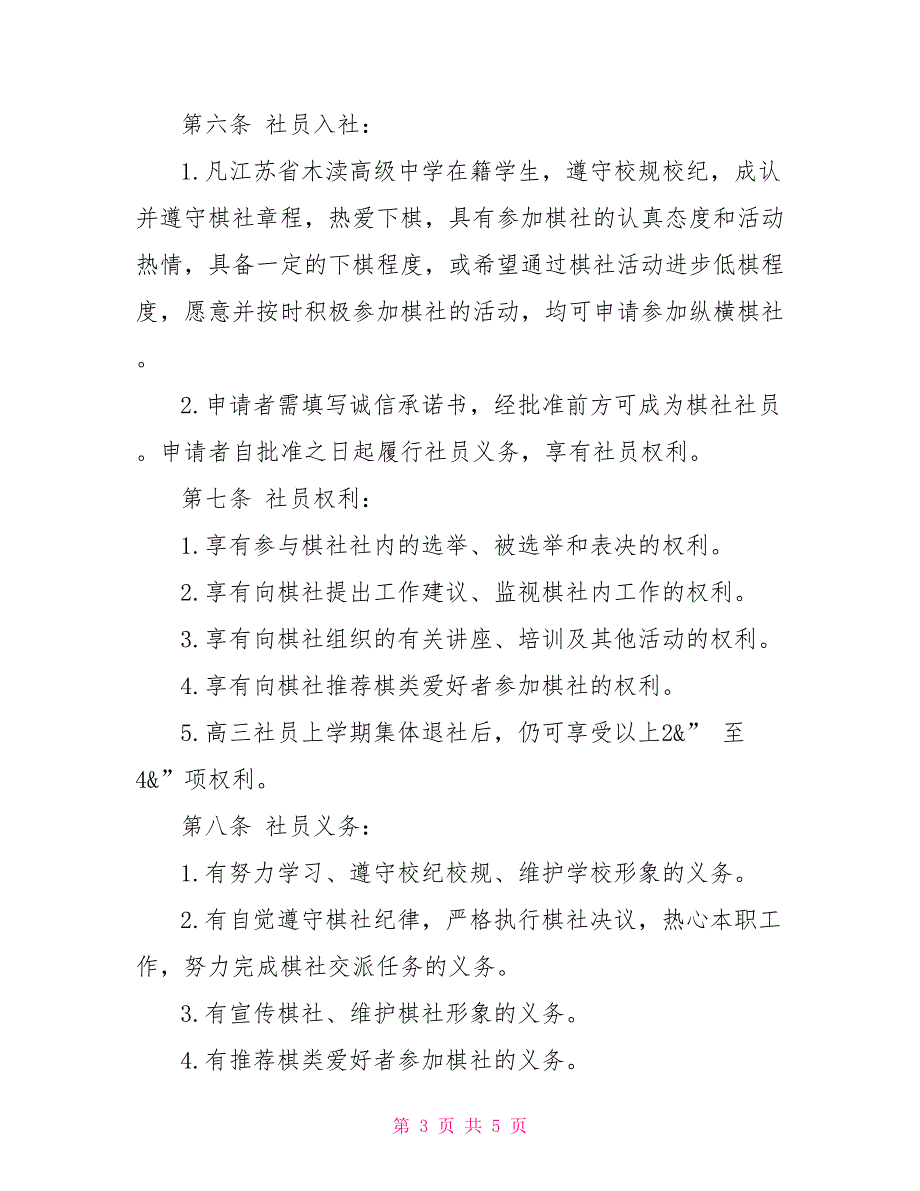 第六条 社员入社：
1.凡江苏省木渎高级中学在籍学生，遵守校规校纪，成认
并遵守棋社章程，热爱下棋，具有参加棋社的认真态度和活动
热情，具备一定的下棋程度，或希望通过棋社活动进步低棋程
度，愿意并按时积极参加棋社的活动，均可申请参加纵横棋社
。
2.申请者需填写诚信承诺书，经批准前方可成为棋社社员
。申请者自批准之日起履行社员义务，享有社员权利。
第七条 社员权利：
1.享有参与棋社社内的选举、被选举和表决的权利。
2.享有向棋社提出工作建议、监视棋社内工作的权利。
3.享有向棋社组织的有关讲座、培训及其他活动的权利。
4.享有向棋社推荐棋类爱好者参加棋社的权利。
5.高三社员上学期集体退社后，仍可享受以上2&” 至
4&”项权利。
第八条 社员义务：
1.有努力学习、遵守校纪校规、维护学校形象的义务。
2.有自觉遵守棋社纪律，严格执行棋社决议，热心本职工
作，努力完成棋社交派任务的义务。
3.有宣传棋社、维护棋社形象的义务。
4.有推荐棋类爱好者参加棋社的义务。
第 3 页 共 5 页